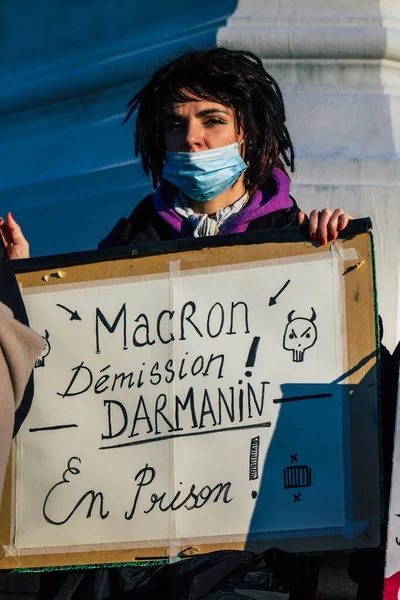 Macron
Démission !
DARMANIN
En Prison !